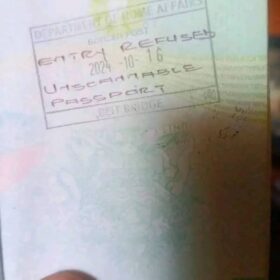 DEPARTMENT OF HOME AFFAIRS
BORDER POST
ENTRY REFUSED
2024-10-16
UNSCANNABLE
PASSPORT
BEIT BRIDGE